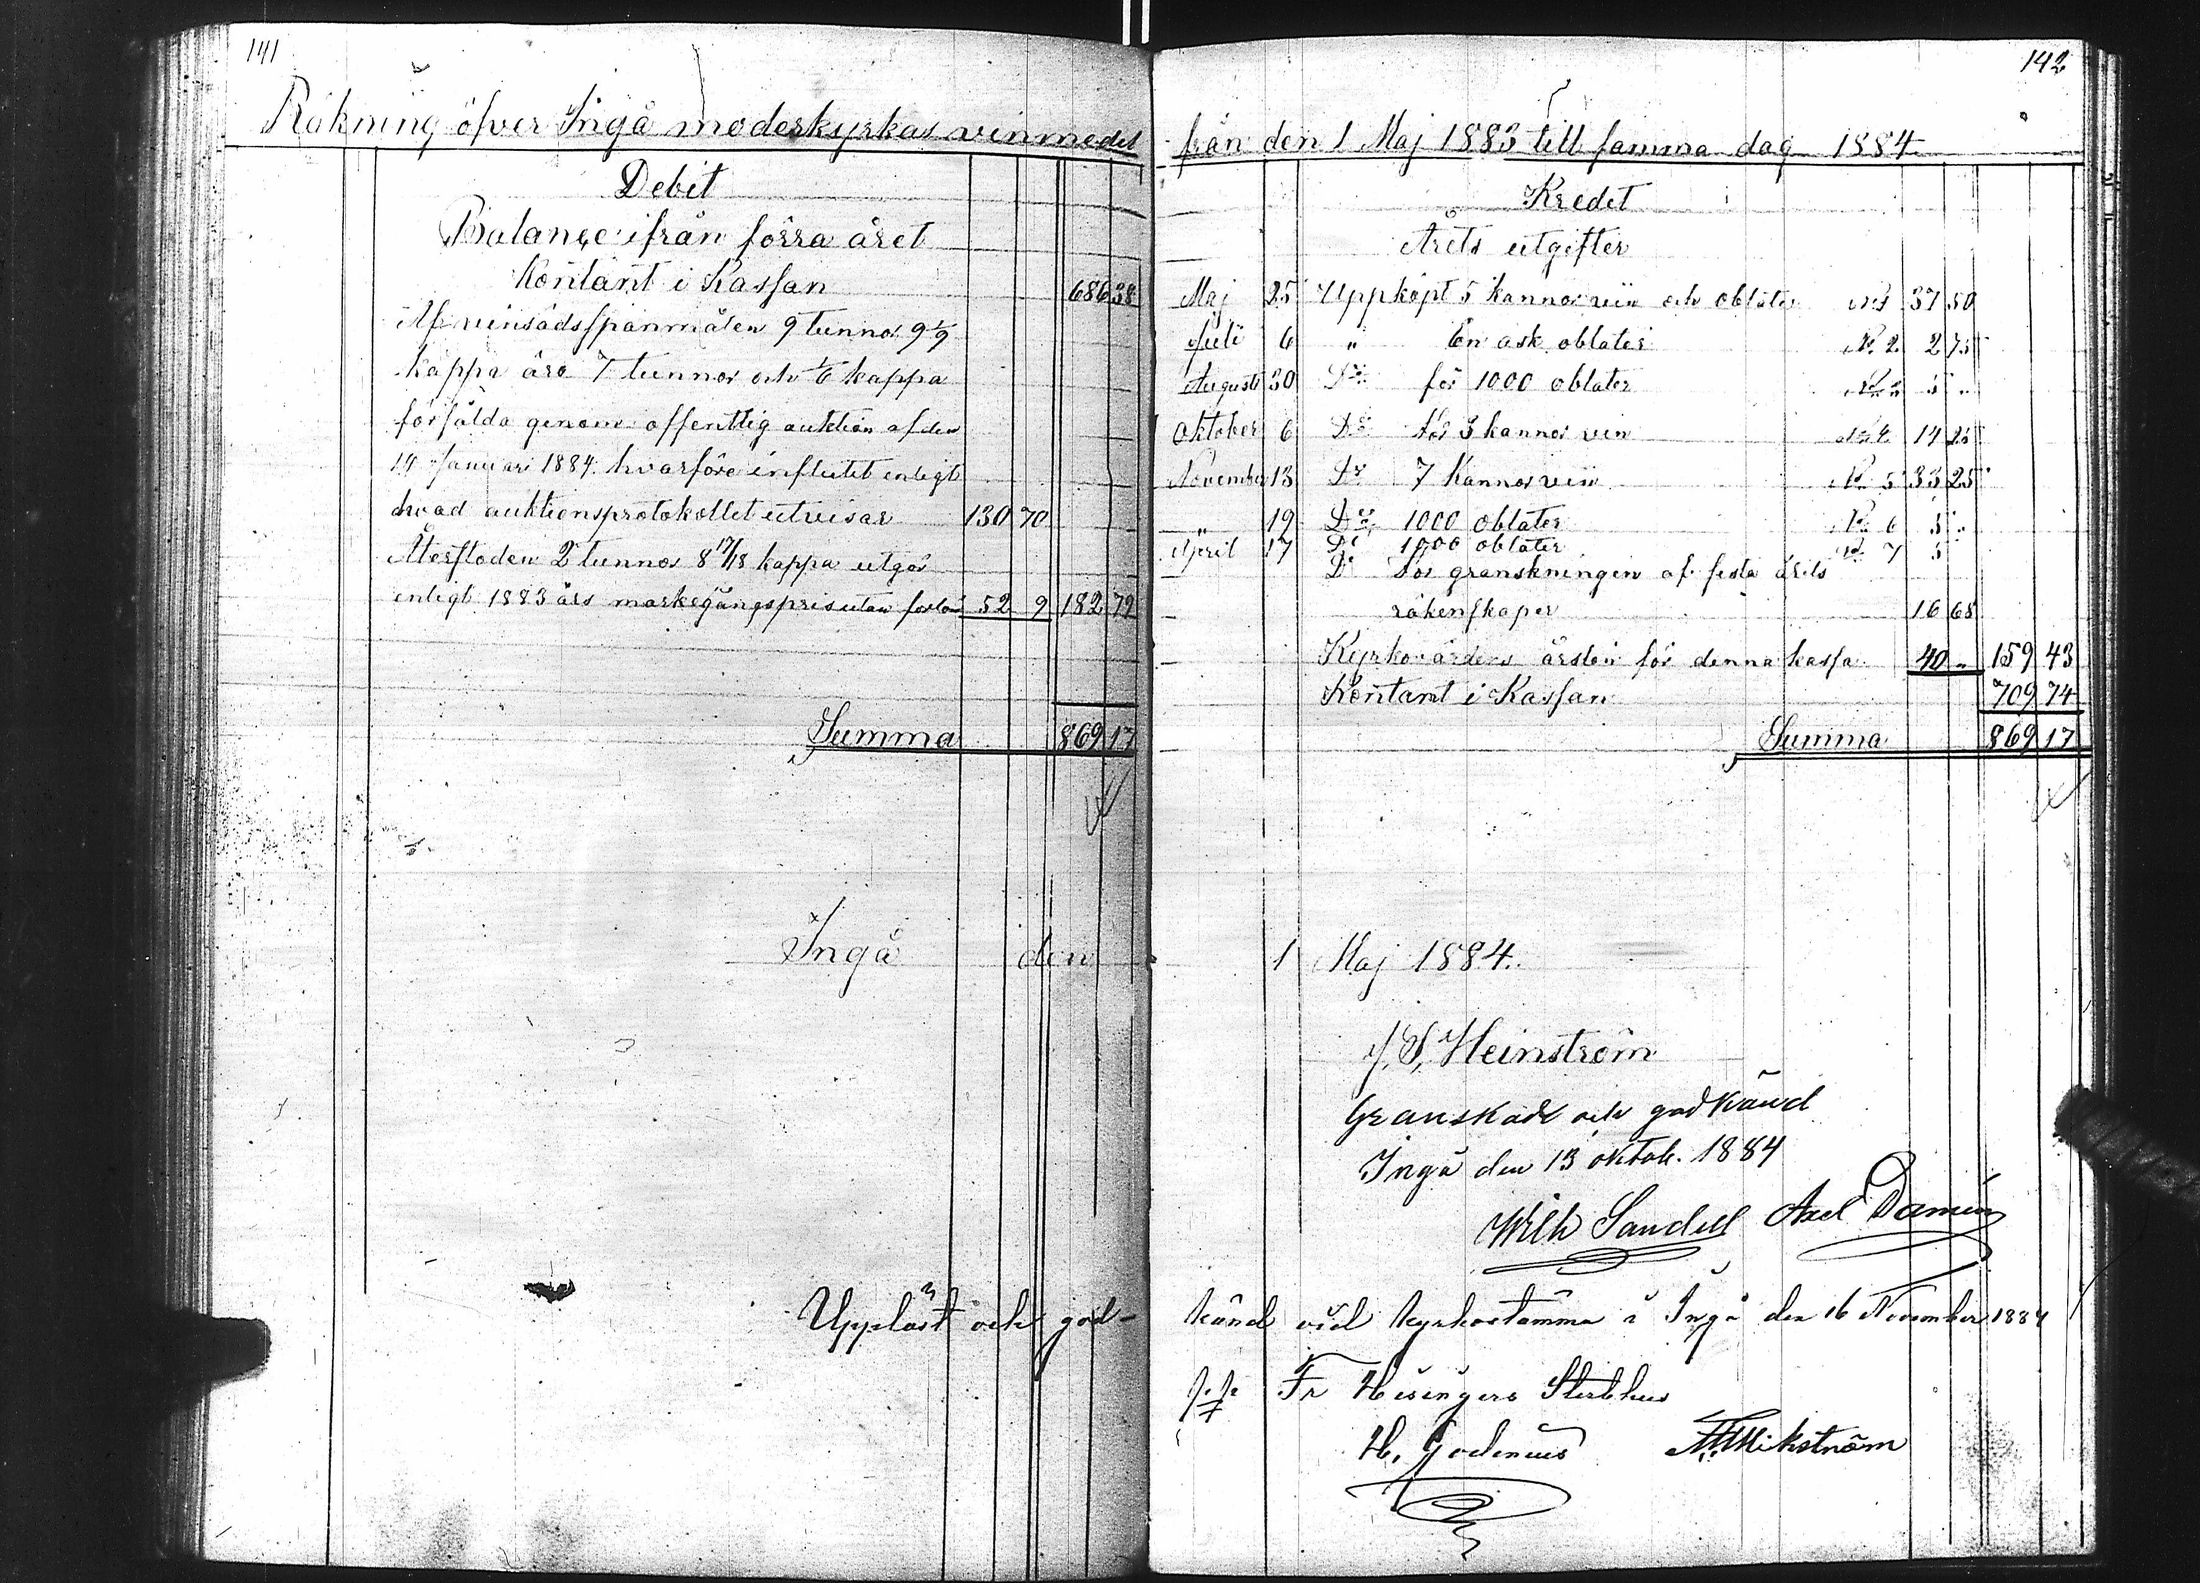 141
Räkning öfver Ingå moderkyrkas vinmedel
Debit
Balance ifrån förra året
Kontant i Kassan 686 38
Af vinsädsspanmålen 9 tunnor 9 1/9
kappa äro 7 tunnor och 1/6 kappa
försålda genom offentlig auktion af den
14 Januari 1884, hvarföre influtit enligt
hvad auktionsprotokollet utvisar 130 70
Återstoden 2 tunnor 8 17/18 kappa utgör
enligt 1883 års markegångspris utan forlön 52 9 182 79
Summa 869 17
Ingå den
Uppläst och god-
142
från den 1 Maj 1883 till samma dag 1884
Kredet
Årets utgifter
Maj 25 Uppköpt 5 kannor vin och oblater No 1 37 50
Juli 6 " En ask oblater No 2 2 75
Augusti 30 Do för 1000 oblater No 3 5 "
Oktober 6 Do för 3 kannor vin No 4 14 25
November 13 Do 7 Kannor vin No 5 33 25
" 19 Do 1000 oblater No 6 5 "
April 17 Do 1000 oblater No 7 5
Do för granskningen af sista årets
räkenskaper 16 68
Kyrkovärdens årslön för denna kassa 40 " 159 43
Kontant i Kassan 709 74
Summa 869 17
1 Maj 1884.
J. S. Heinström
Granskad och godkänd
Ingå den 13 oktob. 1884
Wilh Sandell Axel Damén
känd vid kyrkostämma i Ingå den 16 November 1884
p.p. Fr Hisingers Sterbhus
H. Godenius Wikström